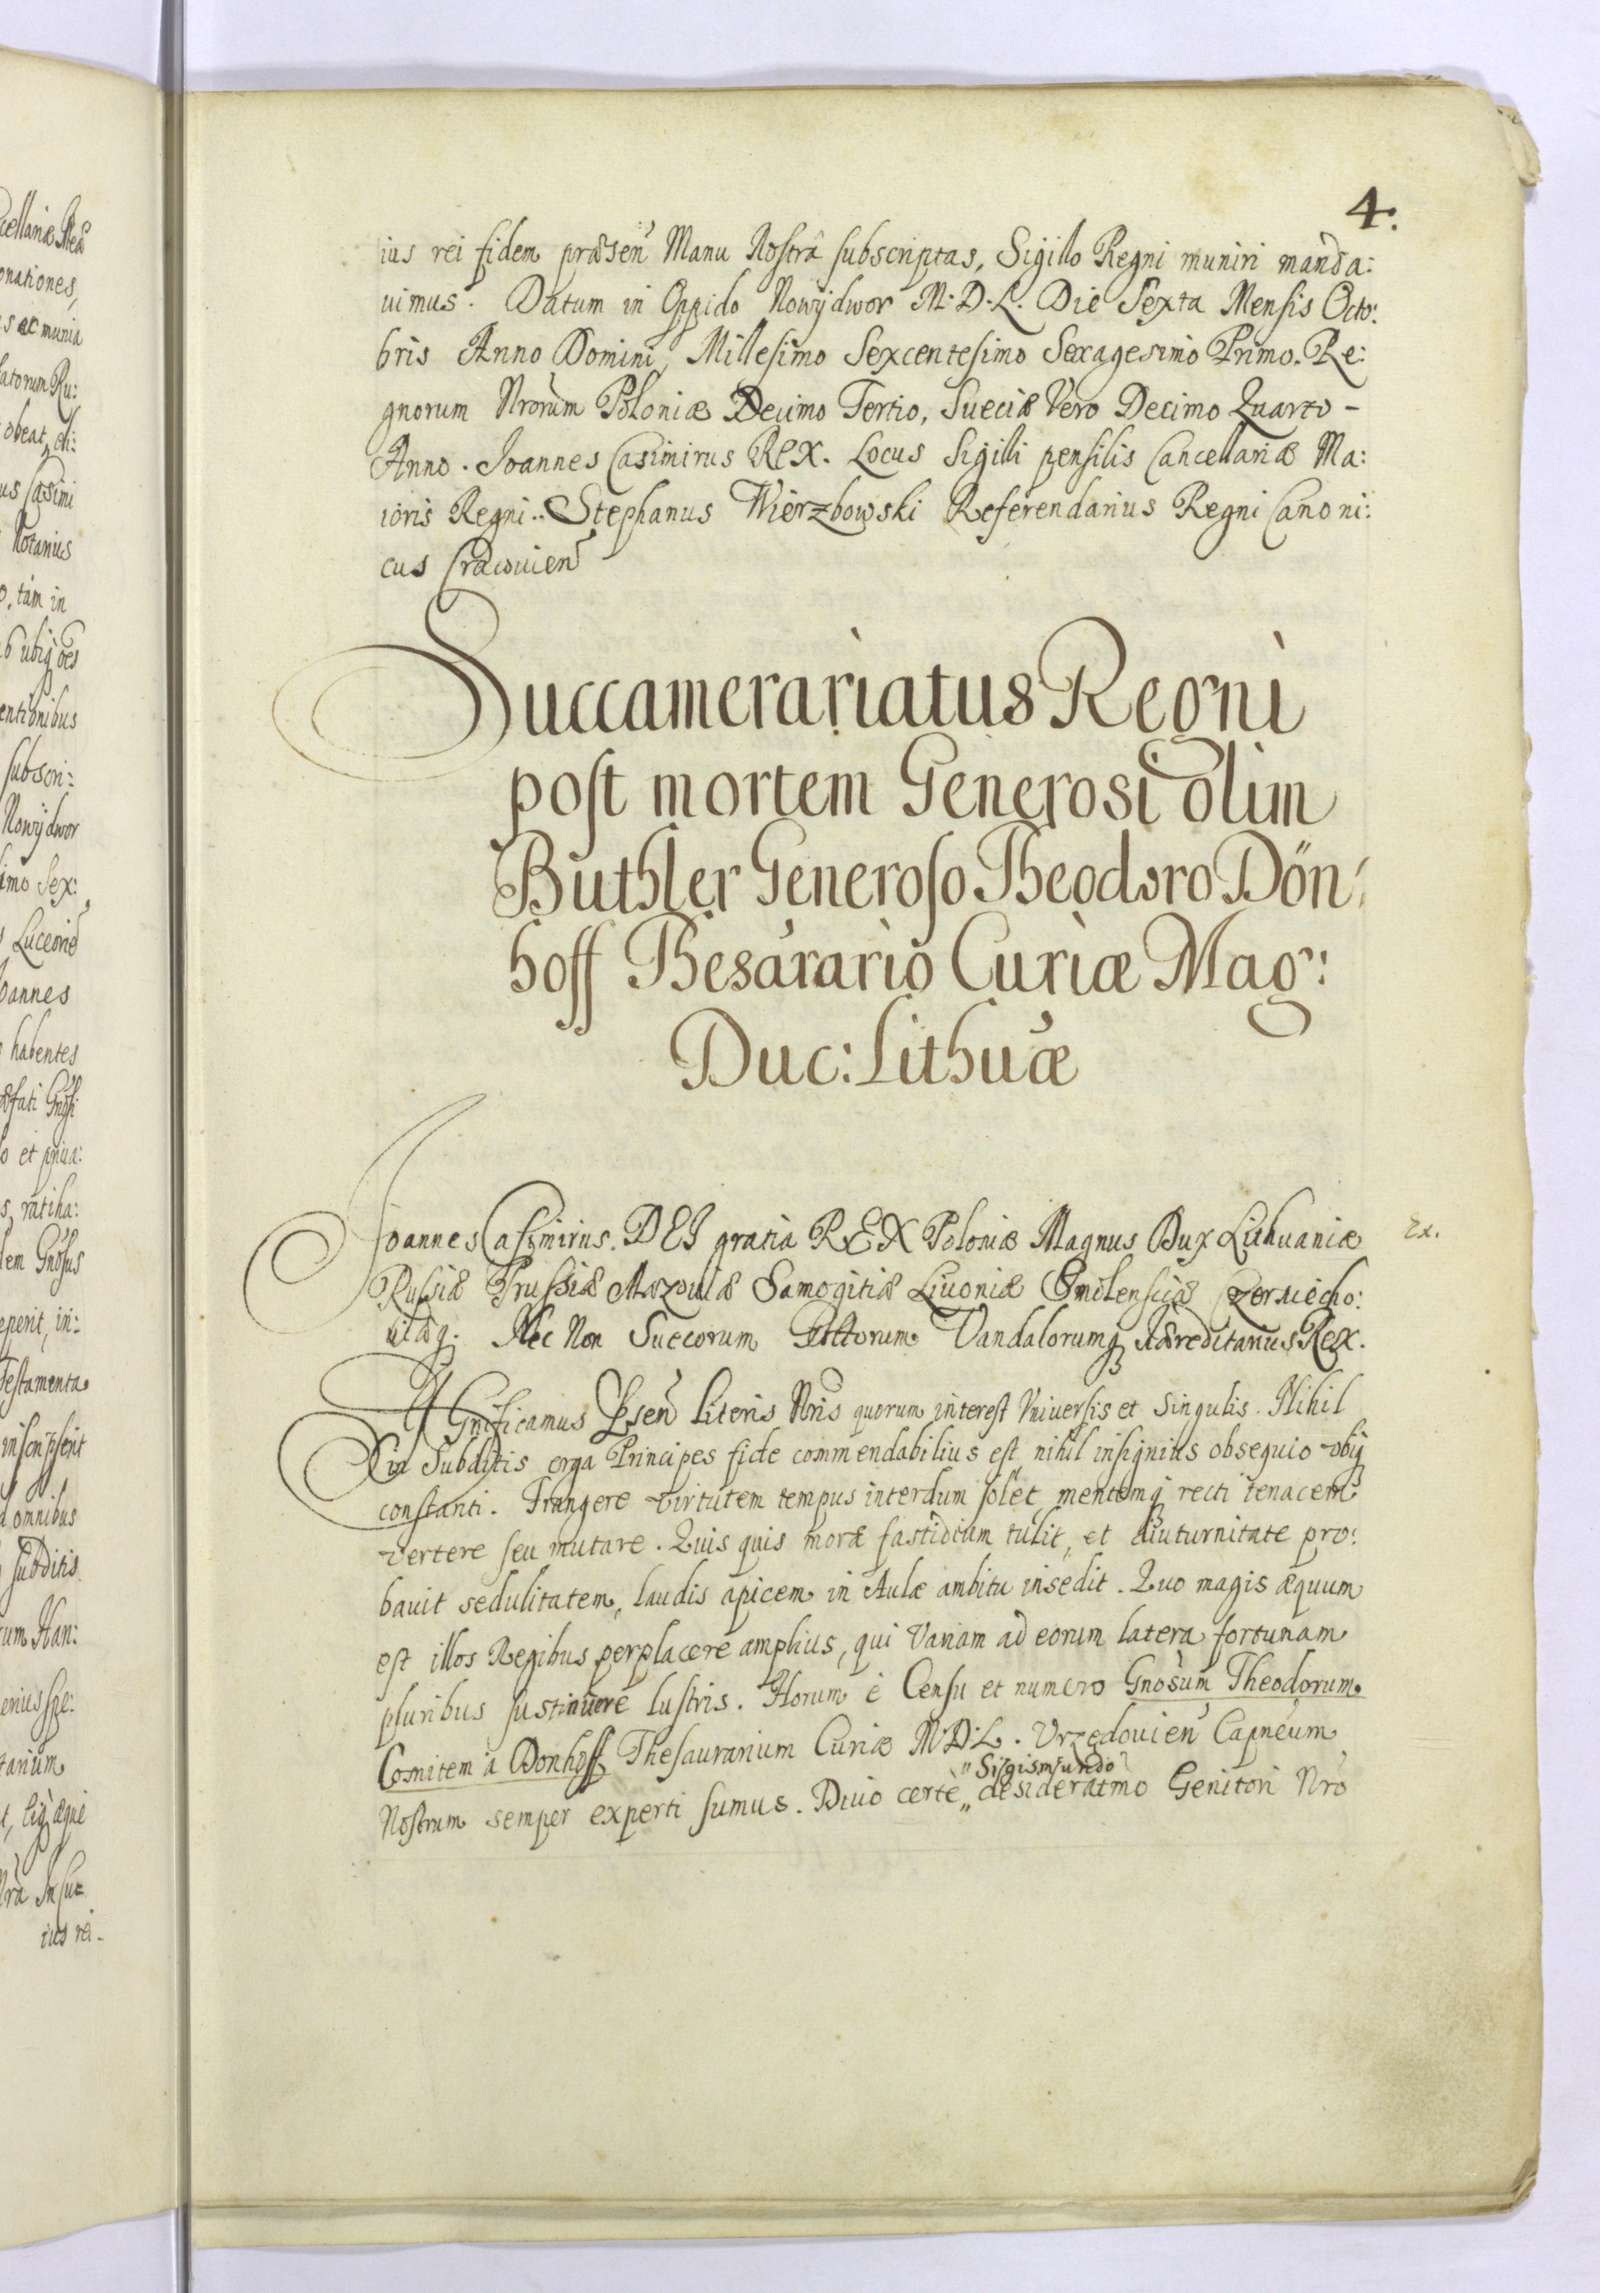 4.
ius rei fidem præsen Manu Nostrâ subscriptas, Sigillo Regni muniri manda:
uimus. Datum in Oppido Nowÿdwor M. D. L. Die Sexta Mensis Octo:
bris Anno Domini, Millesimo Sexcentesimo Sexagesimo Primo. Re:
gnorum Nrorum Poloniæ Decimo Tertio, Sueciæ Vero Decimo Quarto -
Anno. Joannes Casimirus REX. Locus Sigilli pensilis Cancellariæ Ma:
ioris Regni.. Stephanus Wierzbowski Referendarius Regni Canoni:
cus Cracouien
Succamerariatus Regni
post mortem Generosi olim
Buthler Generoso Theodoro Dön:
hoff Thesarario Curiæ Mag:
Duc: Lithuæ
Joannes Casimirus. DEI gratia REX Poloniæ Magnus Dux Lithuaniæ
Ex.
Russiæ Prussiæ Mazouiæ Samogitiæ Liuoniæ Smolensciæ Czerniecho:
uiæq. Nec Non Suecorum Gottorum Vandalorumq Hæreditarius Rex.
Significamus Psen Literis Nris quorum interest Vniuersis et Singulis. Nihil
in Subditis erga Principes fide commendabilius est, nihil insignius obsequio vbiq
constanti. Frangere virtutem tempus interdum solet, mentemq recti tenacem
vertere seu mutare. Quis quis moræ fastidium tulit, et diuturnitate pro:
bauit sedulitatem, laudis apicem in Aulæ ambitu insedit. Quo magis æquum
est illos Regibus perplacere amplius, qui Variam ad eorum latera fortunam
pluribus sustinuere lustris. Horum è Censu et numero Gnosum Theodorum
Comitem à Donhoff Thesaurarium Curiæ M. D. L. Vrzędouien Capneum
Nostrum semper experti sumus. Diuo certè „ Sigismundo „ desideratmo Genitori Nro